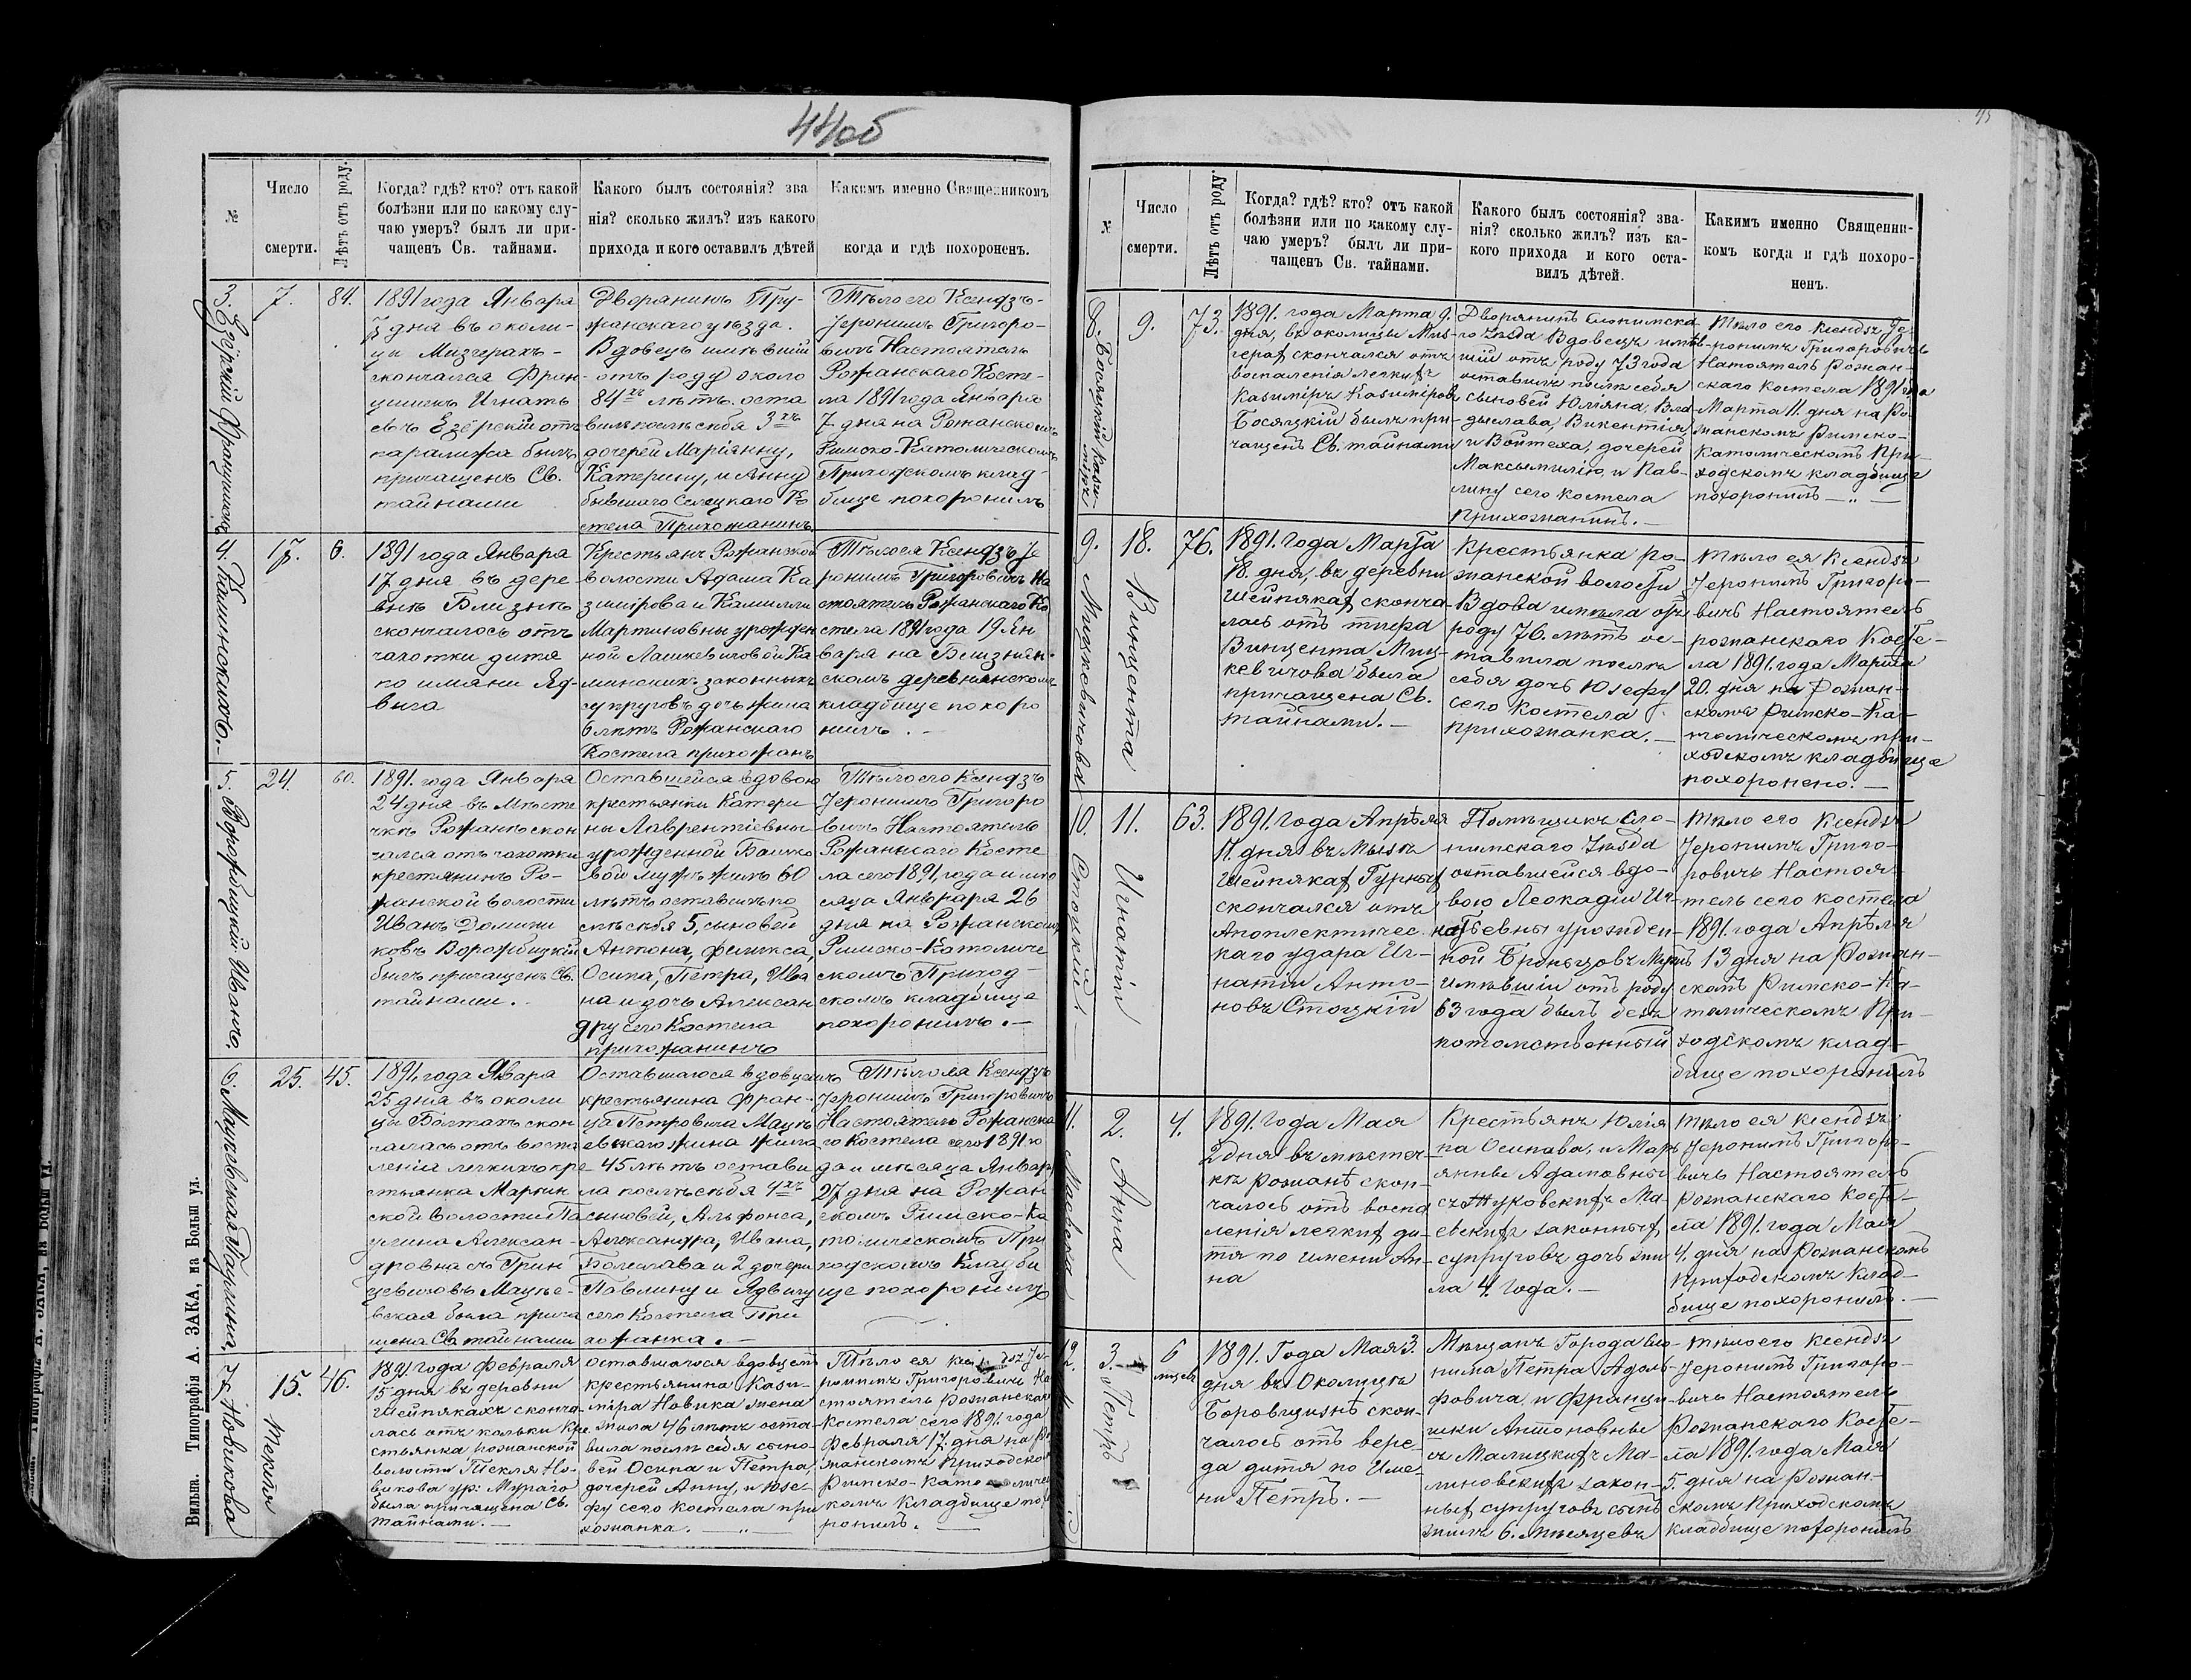 44об
45
№
Число
смерти.
Лѣтъ отъ роду.
Когда? гдѣ? кто? отъ какой
болѣзни или по какому слу-
чаю умеръ? былъ ли при-
чащенъ Св. тайнами.
Какого былъ состоянія? зва
нія? сколько жилъ? изъ какого
прихода и кого оставилъ дѣтей
Какимъ именно Священникомъ
когда и гдѣ похороненъ.
3. Езёрскій Францишекъ
7.
84.
1891 года Января
7 дня въ околи-
цы Мизгерахъ-
скончался Фран
цишекъ Игнать
евъ Езёрскій отъ
паралижа былъ
причащенъ Св.
тайнами
Дворянинъ Пру-
жанскаго уѣзда.
Вдовецъ имѣвшій
отъ роду около
84хъ лѣтъ. оста
вилъ послѣ себя 3хъ
дочерей Маріянну,
Катерину, и Анну
бывшаго Селецкаго Ко
стела Прихожанинъ
Тѣло его Ксендзъ-
Іеронимъ Григоро-
вичъ Настоятель
Рожанскаго Косте-
ла 1891 года Января
7 дня на Рожанскомъ
Римско-Католическомъ
Приходскомъ клад-
бище похоронилъ
4. Каминскихъ.
17.
6.
1891 года Января
17 дня въ дере-
внѣ Близнѣ
скончалось отъ
чахотки дитя
по имяни Яд-
выга
Крестьянъ Рожанской
волости Адама Ка
зимірова и Камилли
Мартиновны урожден
ной Лашкевичовой Ка
минскихъ законныхъ
супруговъ дочь жила
6 лѣтъ Рожанскаго
Костела прихожанъ
Тѣло ея Ксендзъ Іе
ронимъ Григоровичъ На
стоятель Рожанскаго Ко
стела 1891 года 19 Ян
варя на Близнян-
скомъ деревнянскомъ
кладбище похоро
нилъ. —
5. Ворожбицкій Иванъ.
24.
60.
1891. года Января
24 дня въ Мѣсте
чкѣ Рожанѣ скон
чался отъ чахотки
крестянинъ Ро-
жанской волости
Иванъ Домини
ковъ Ворожбицкій
былъ причащенъ Св.
тайнами.
Оставшейся вдовою
крестьянки Катери
ны Лаврентіевны
урожденной Башко
вой мужъ жилъ 60
лѣтъ оставилъ по
слѣ себя 5, сыновей
Антона, Феликса,
Осипа, Петра, Ива
на и дочь Алексан
дру сего Костела
прихожанинъ
Тѣло его Ксендзъ
Іеронимъ Григоро
вичъ Настоятель
Рожанскаго Косте
ла сего 1891 года и мѣ
сяца Января 26
дня на Рожанском
Римско-Католиче
скомъ Приход-
скомъ кладбище
похоронилъ. —
6. Мацкевская Паулина.
25.
45.
1891. года Явара
25 дня въ околи
цы Болтахъ скон
чалась отъ воспа
ленія легкихъ кре
стьянка Маркин
ской волости Па
улина Алексан-
дровна съ Грин
цевичовъ Мацке-
вская была прича
щена Св. тайнами
Оставшагося вдовцемъ
крестьянина Фран-
ца Петровича Мацк
евскаго жина жила
45 лѣтъ остави
ла послѣ себя 4хъ
сыновей, Альфонса,
Александра, Ивана,
Болеслава и 2 дочери
Павлину и Ядвигу
сего Костела При
хожанка. —
Тѣло ея Ксендзъ
Іеронимъ Григоровичъ
Настоятель Рожанска
го Костела сего 1891 го
да и мѣсяца Января
27 дня на Рожан
скомъ Римско-Ка
толическомъ При
ходскомъ Кладби
ще похоронилъ
7. Новикова
Текля
15.
46.
1891 года Февраля
15 дня въ деревни
Шейпякахъ сконча-
лась отъ кольки Кре
стьянка рожанской
волости Текля Но-
викова ур: Мураго
была причащена Св.
тайнами. —
оставшагося вдовцемъ
крестьянина Кази-
міра Новика жена
жила 46 лѣтъ оста-
вила послѣ себя сыно-
вей Осипа и Петра,
дочерей Анну, и Юзе-
фу сего костела при
хожанка. —
Тѣло ея Ксендзъ Іе-
ронимъ Григоровичъ На
стоятель Рожанскаго
Костела сего 1891. года
Февраля 17. дня на Ро
жанскомъ Приходско
Римско-Католичес
комъ Кладбище по
ронилъ. —
Вильна. Типографія А. ЗАКА, на Больш ул.
№
Число
смерти.
Лѣтъ отъ роду.
Когда? гдѣ? кто? отъ какой
болѣзни или по какому слу-
чаю умеръ? былъ ли при-
чащенъ Св. тайнами.
Какого былъ состоянія? зва-
нія? сколько жилъ? изъ ка-
кого прихода и кого оста-
вилъ дѣтей.
Какимъ именно Священни-
комъ когда и гдѣ похоро-
ненъ.
8. Босяцкій Кази-
міръ
9.
73.
1891. года Марта 9.
дня, въ околицы Миз-
герах скончался отъ
воспаленія легкихъ
Казиміръ Казиміровъ
Босяцкій былъ при-
чащенъ Св. тайнами
Дворянинъ Слонимска-
го уѣзда Вдовецъ имѣв-
шій отъ роду 73 года
оставилъ послѣ себя
сыновей Юліяна, Вла
дыслава, Викентія
и Войтеха, дочерей
Максымилію, и Пав-
лину сего костела
прихожанинъ. —
Тѣло его Ксендзъ Іе-
ронимъ Григоровичъ
Натоятель Рожан-
скаго костела 1891 года
Марта 11. дня на Ро-
жанскомъ Римско-
католическомъ При-
ходскомъ кладбище
похоронилъ —
9. Мицкевичова
Винцента
18.
76.
1891. Года Марта
18. дня, въ деревни
Шейпяках сконча
лась отъ тифа
Винцента Миц-
кевичова была
причащена Св.
тайнами. —
Крестьянка ро-
жанской волости
Вдова имѣла отъ
роду 76. лѣтъ ос-
тавила послѣ
себя дочь Юзефу
сего костела
прихожанка. —
Тѣло ея Ксендзъ
Іеронимъ Григоро-
вичъ Настоятель
рожанскаго Косте-
ла 1891. года Марта
20. дня на Рожан-
скомъ Римско-Ка-
толическомъ при-
ходскомъ кладбище
похоронено. —
10. Стоцкій. —
Игнатій
11.
63.
1891. Года Апрѣля
11. дня въ Мызѣ
Шейпяках Гурных
скончался отъ
Апоплектичес
каго удара Иг-
натій Анто-
новъ Стоцкій
Помѣщикъ Сло-
нимскаго Уѣзда
оставшейся вдо-
вою Леокадіи Иг-
натьевны урожден-
ной Броньцовъ Мужъ
имѣвшій отъ роду
63 года былъ без
потомственный
Тѣло его Ксендзъ
Іеронимъ Григо-
ровичъ Настоя-
тель сего костела
1891. года Апрѣля
13 дня на Рожан-
скомъ Римско-Ка-
толическомъ При-
ходскомъ клад-
бище похоронилъ
11. Маевская
Анна
2.
4.
1891. Года Мая
2 дня въ мѣстеч-
кѣ рожанѣ скон-
чалось отъ воспа
ленія легких ди-
тя по имени Ан-
на
Крестьянъ Юлія
на Осипава, и Марь
янны Адамовны
съ Жуковскихъ Ма-
евских законных,
супруговъ дочь жи
ла 4. года. —
Тѣло ея Ксендзъ
Іеронимъ Григоро-
вичъ Настоятель
рожанскаго Косте-
ла 1891. года Мая
4. дня на Рожанскомъ
Приходскомъ Клад-
бище похоронилъ. —
12.
Петръ
3.
6
мѣсец
1891. Года Мая 3.
дня въ Околицѣ
Боровщизнѣ скон-
чалось отъ вере-
да дитя по Име-
ни Петръ. —
Мѣщанъ Города Сло-
нима Петра Адоль-
фовича, и Франци-
шки Антоновны
съ Малицкихъ Ма-
линовскихъ закон-
ных супруговъ сынъ
жилъ 6. мѣсяцевъ
Тѣло его Ксендзъ
Іеронимъ Григоро-
вичъ Настоятель
Рожанскаго Косте-
ла 1891. года Мая
5. дня на Рожан-
скомъ Приходскомъ
кладбище похоронилъ